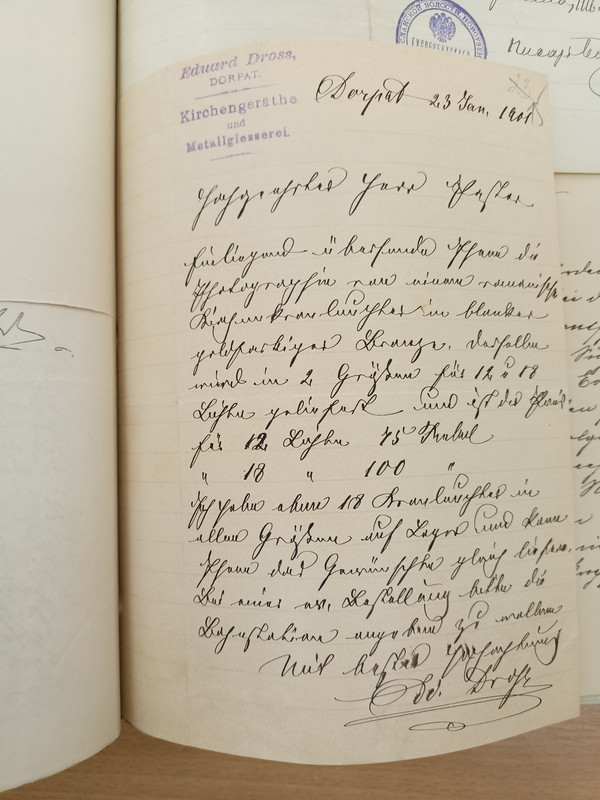 Eduard Dross,
DORPAT.
Kirchengeräthe
und
Metallgiesserei.
Dorpat 23 Jan. 1901
Hochgeehrter Herr Pastor
Einliegend übersende Ihnen die
Photographie von einem romanische
Kirchenkronleuchter in blanker
goldfarbiger Bronze, derselbe
wird in 2 Größen für 12 u 18
Lichte geliefert und ist der Preis
für 12 Lichte 75 Rubel
" 18 " 100 "
Ich habe eben 18 Kronleuchter in
allen Größen auf Lager und kann
Ihnen das Gewünschte gleich liefern.
Bei einer ev. Bestellung bitte die
Bahnstation angeben zu wollen
Mit bester Hochachtung
Ed. Dross